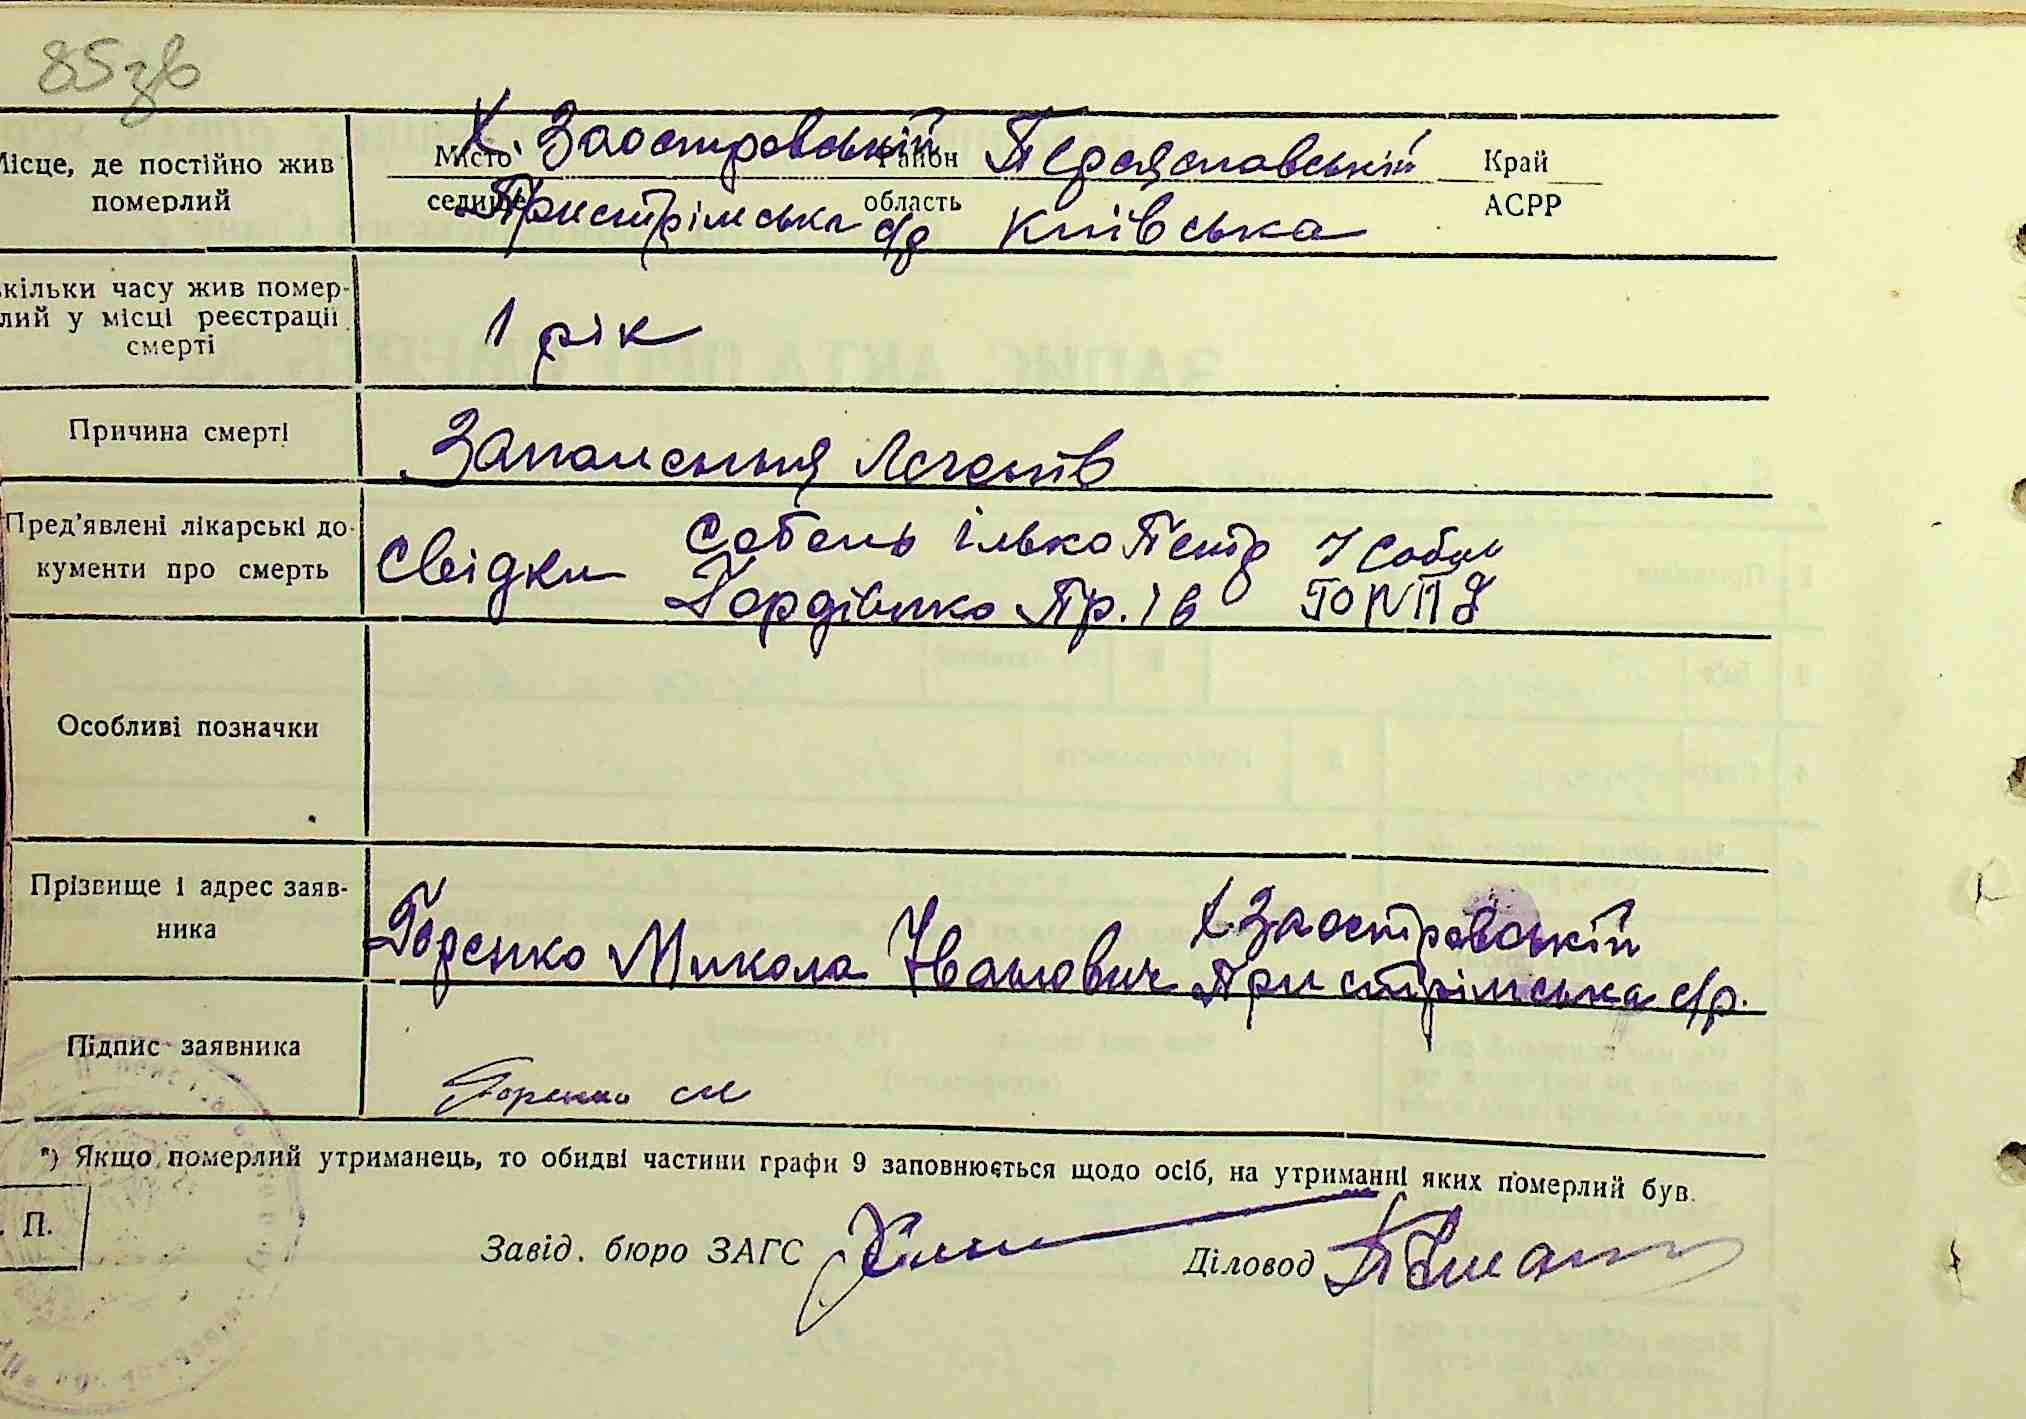 85зв
Місце, де постійно жив померлий
Місто селище Х. Заостровський Пристрімська с/р
Район область Переяславський Київська
Край АСРР
скільки часу жив помер-
лий у місці реєстрації
смерті
1 рік
Причина смерті
Запалення Легенів
Пред'явлені лікарські до-
кументи про смерть
Свідки
Ілько Петр
Гордієнко Пр. Ів
Особливі позначки
Прізвище і адрес заяв-
ника
Горенко Микола Іванович Х Заостровській Пристрімська с/р.
Підпис заявника
Горенко
*) Якщо померлий утриманець, то обидві частини графи 9 заповнюється щодо осіб, на утриманні яких померлий був.
П.
Завід. бюро ЗАГС
Діловод